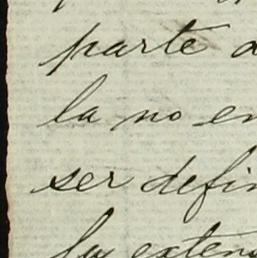 parte
la no en
ser defin
la exten